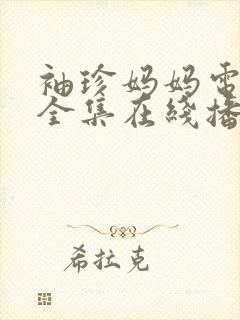 袖珍妈妈电
全集在线播
希拉克